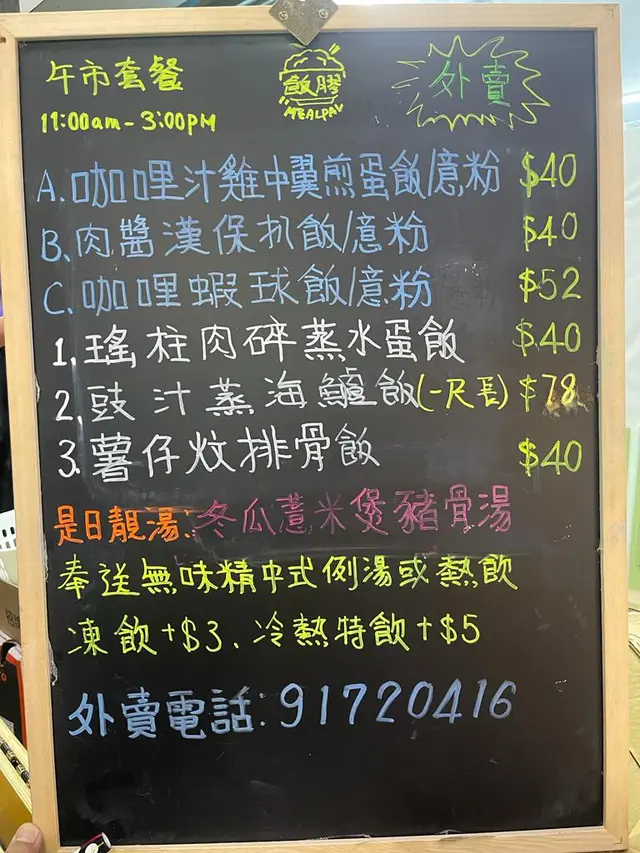 午市套餐
11:00am - 3:00PM
飯膠
MEALPAL
外賣
A.咖哩汁雞中翼煎蛋飯/意粉 $40
B.肉醬漢保扒飯/意粉 $40
C.咖哩蝦球飯/意粉 $52
1.瑤柱肉碎蒸水蛋飯 $40
2.豉汁蒸海鱸飯(一尺長) $78
3.薯仔炆排骨飯 $40
是日靚湯:冬瓜薏米煲豬骨湯
奉送無味精中式例湯或熱飲
凍飲+$3、冷熱特飲+$5
外賣電話:91720416